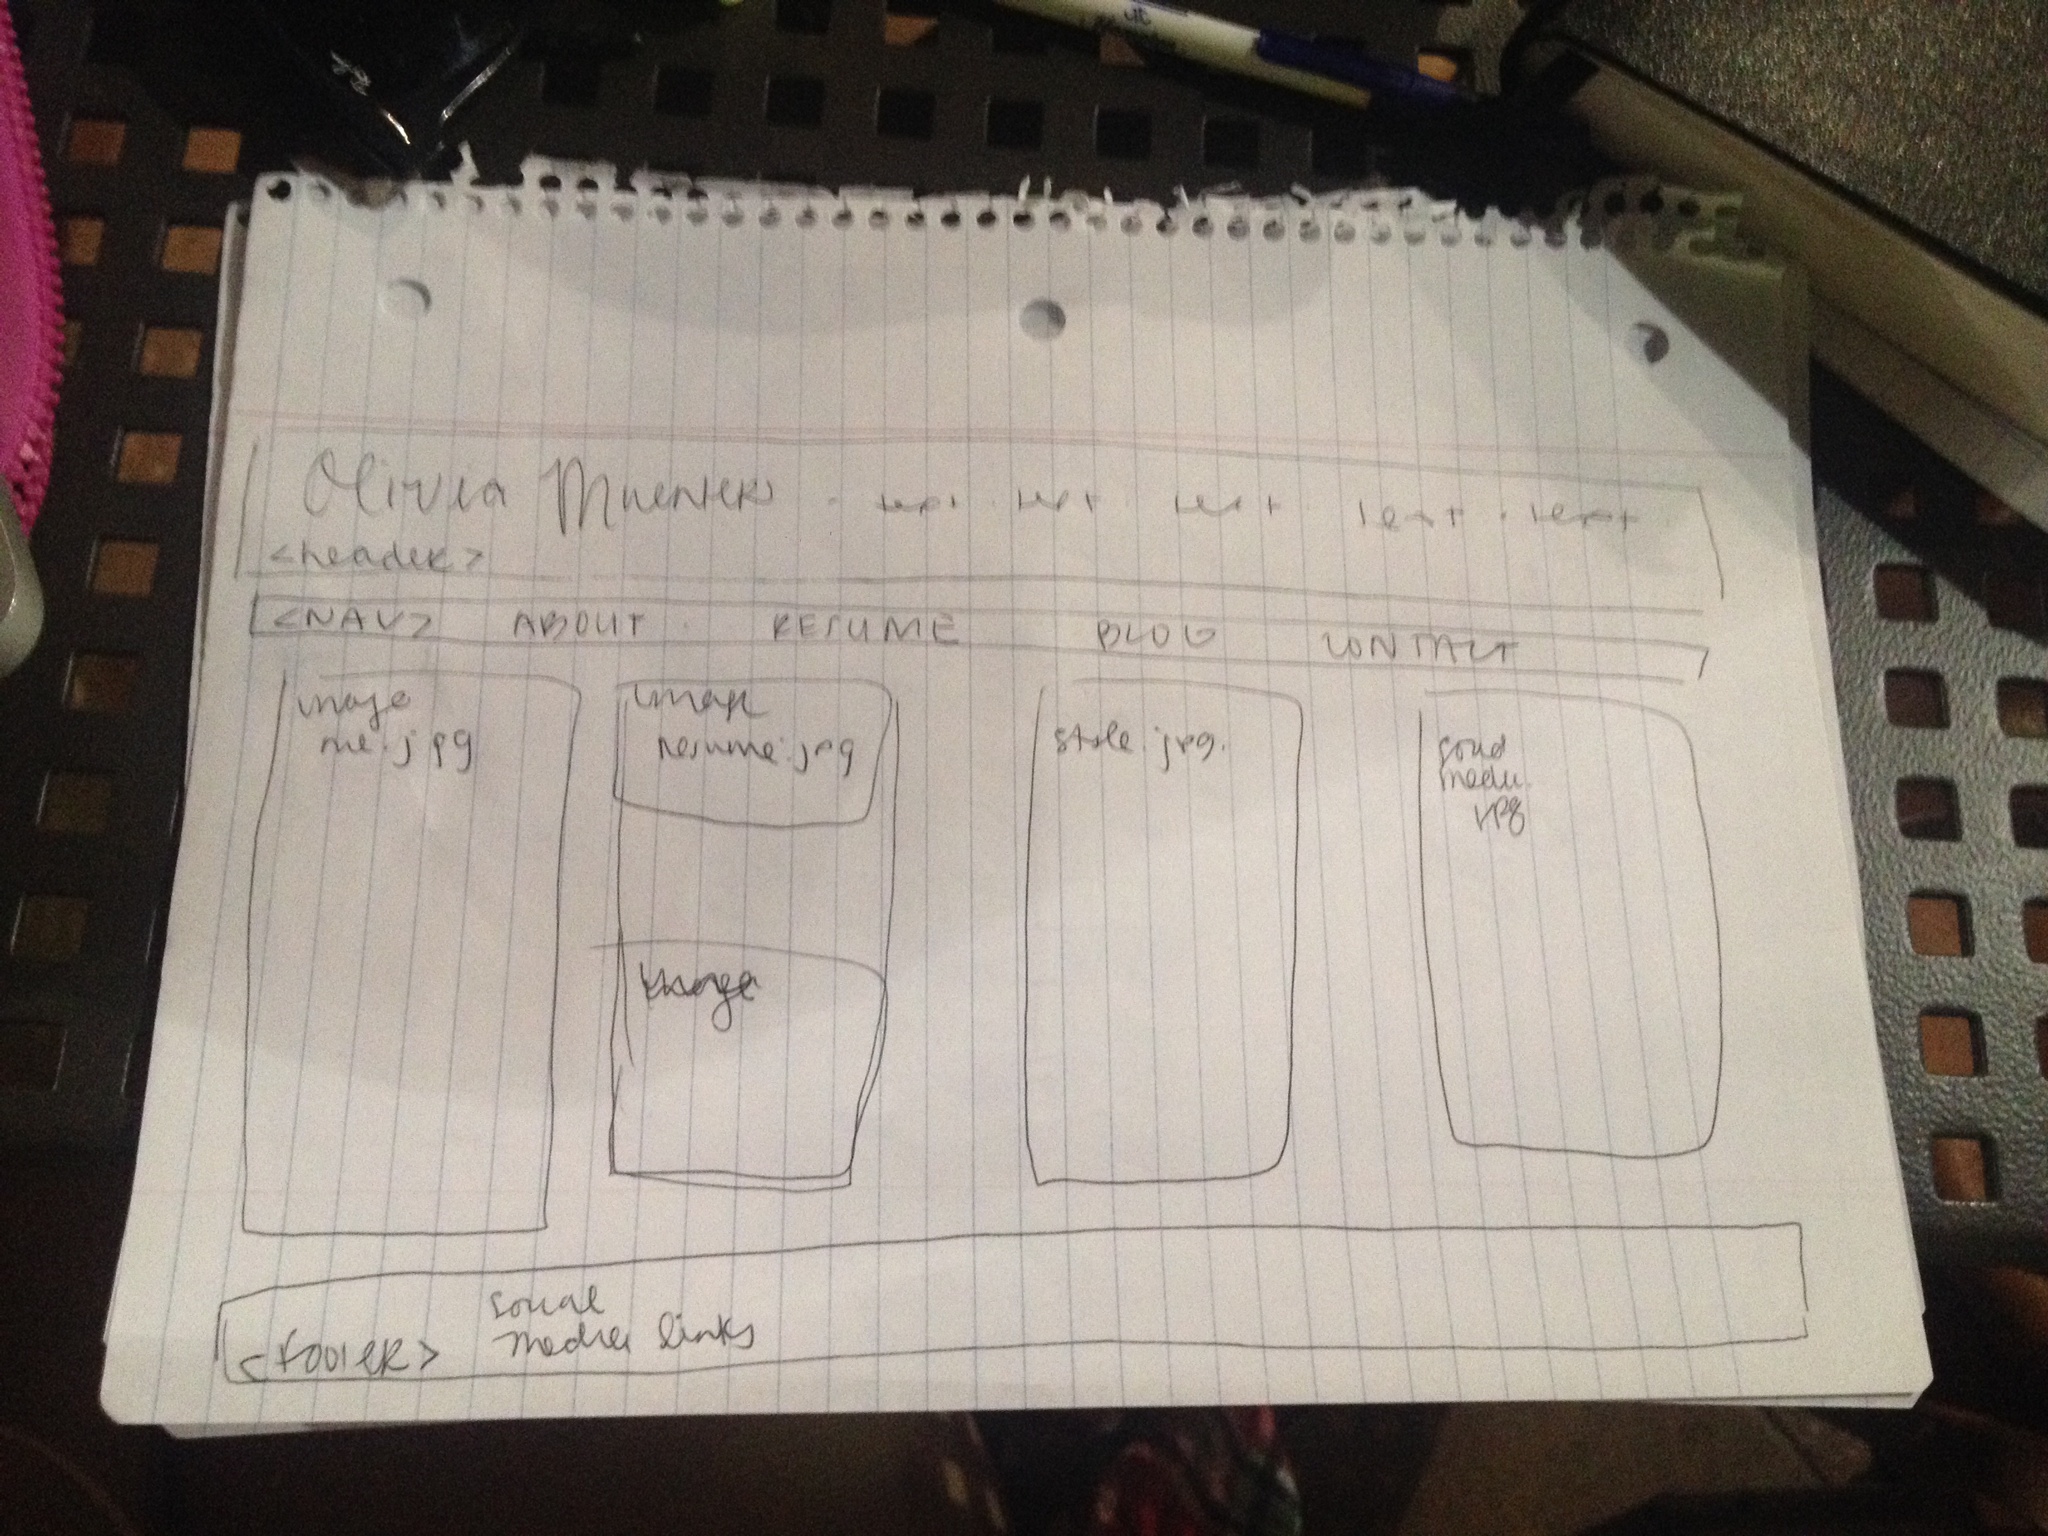 Olivia · text · text text text · text
<header>
<NAV> ABOUT · RESUME BLOG CONTACT
image
me.jpg
image
resume.jpg
image
style.jpg.
social
media
jpg
<footer> social
media links